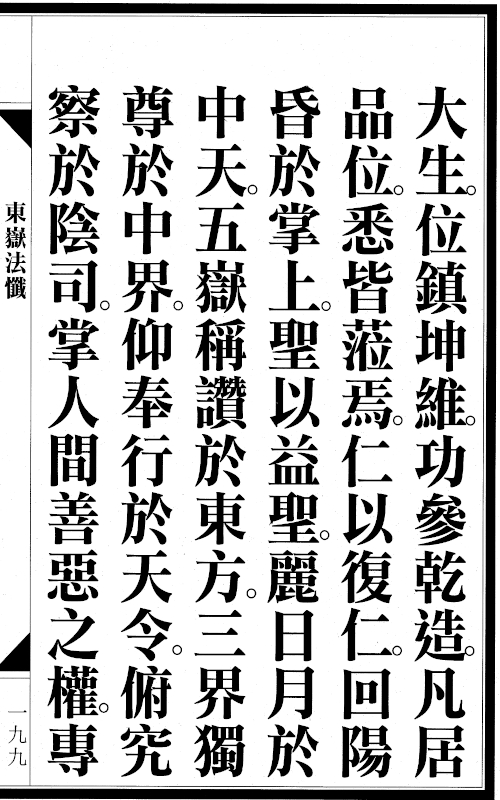 大生。位鎮坤維。功參乾造。凡居
品位。悉皆蒞焉。仁以復仁。回陽
昏於掌上。聖以益聖。麗日月於
中天。五嶽稱讚於東方。三界獨
尊於中界。仰奉行於天令。俯究
察於陰司。掌人間善惡之權。專
東嶽法懺
一九九